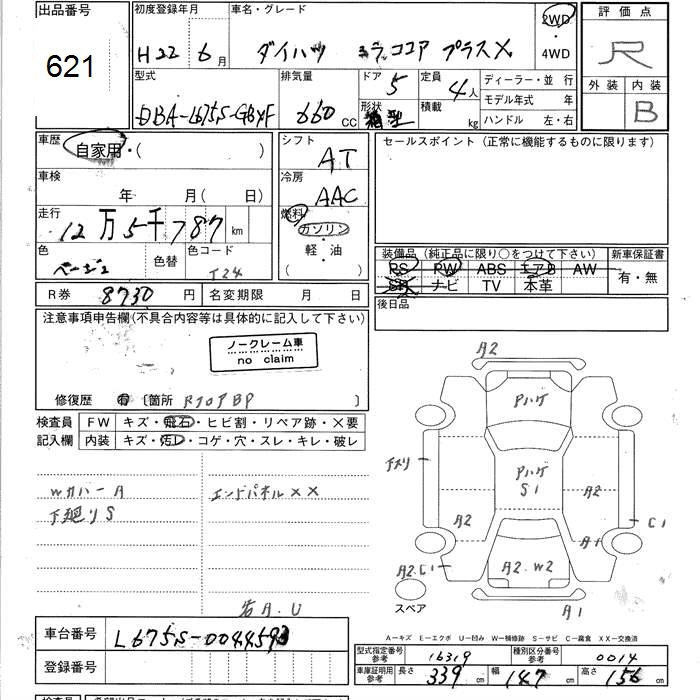 出品番号
621
初度登録年月
H22 6月
車名・グレード
ダイハツ ミラココア プラスX
2WD
・
4WD
評価点
R
外装 内装
B
型式
DBA-L675S-GBXF
排気量
660 CC
ドア 5
形状 箱型
定員 4人
積載 kg
ディーラー・並行
モデル年式 年
ハンドル 左・右
車歴
自家用・( )
車検
年 月( 日)
走行
12万5千787km
色
ベージュ
色替
色コード
T24
シフト
AT
冷房
AAC
燃料
ガソリン
・
軽・油
セールスポイント(正常に機能するものに限ります)
装備品(純正品に限り○をつけて下さい)
PS PW ABS エアB AW
SR ナビ TV 本革
新車保証書
有・無
後日品
R券 8730円
名変期限 月 日
注意事項申告欄(不具合内容等は具体的に記入して下さい)
ノークレーム車
no claim
修復歴 有 〔箇所 RフロアBP 〕
検査員
記入欄
FW キズ・飛石・ヒビ割・リペア跡・×要
内装 キズ・汚レ・コゲ・穴・スレ・キレ・破レ
Wカバー A
下廻りS
エンドパネル××
若A.U
A2
Pハゲ
下スリ
Pハゲ
S1
A2
A2
C1
A1
A2.C1
A2.W2
スペア
A1
A-キズ E-エクボ U-凹み W-補修跡 S-サビ C-腐食 XX-交換済
車台番号 L675S-0044593
登録番号
型式指定番号
参考
16319
種別区分番号
参考
0014
車庫証明用
参考
長さ 339cm 幅 147cm 高さ 156cm